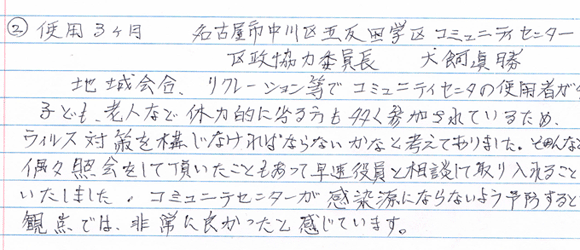 ② 使用3ヶ月 名古屋市中川区 学区コミュニティセンター
区政協力委員長 犬飼貞勝
地域会合、リクレーション等でコミュニティセンタの使用者が
子ども、老人など体力的に劣る方も多く参加されているため、
ウィルス対策を構じなければならないかなと考えてありました。そんな
偶々照会をして頂いたこともあって早速役員と相談して取り入れること
いたしました。コミュニテセンターが感染源にならないよう予防すると
観点では、非常に良かったと感じています。